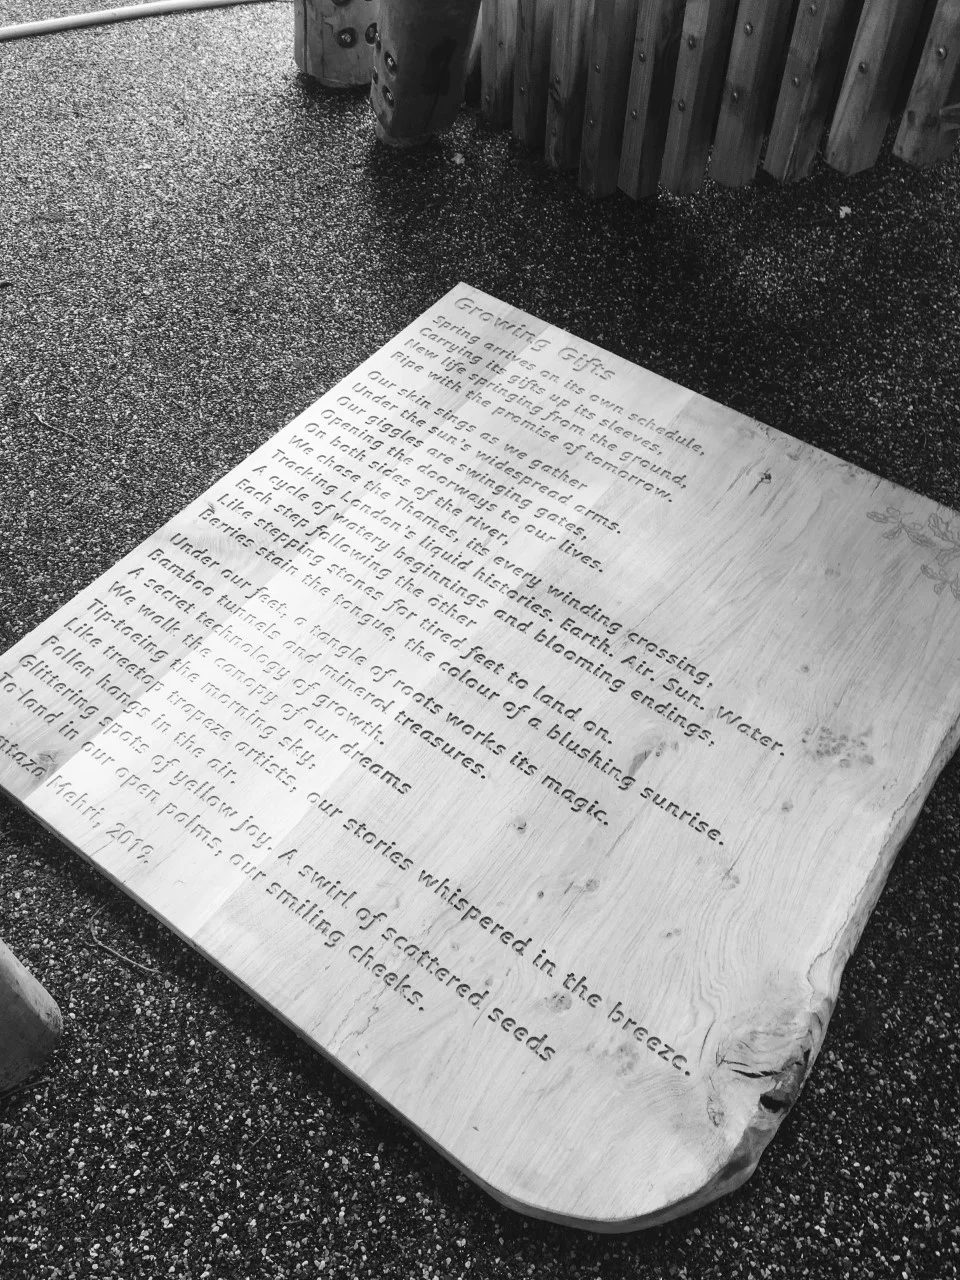 Growing Gifts
Spring arrives on its own schedule,
Carrying its gifts up its sleeves.
New life springing from the ground,
Ripe with the promise of tomorrow.
Our skin sings as we gather
Under the sun's widespread arms.
Our giggles are swinging gates,
Opening the doorways to our lives.
On both sides of the river,
We chase the Thames, its every winding crossing,
Tracking London's liquid histories. Earth. Air. Sun. Water.
A cycle of watery beginnings and blooming endings,
Each step following the other
Like stepping stones for tired feet to land on.
Berries stain the tongue, the colour of a blushing sunrise.
Under our feet, a tangle of roots works its magic.
Bamboo tunnels and mineral treasures.
A secret technology of growth.
We walk the canopy of our dreams
Tip-toeing the morning sky;
Like treetop trapeze artists, our stories whispered in the breeze.
Pollen hangs in the air.
Glittering spots of yellow joy. A swirl of scattered seeds
To land in our open palms, our smiling cheeks.
Mehri, 2019.